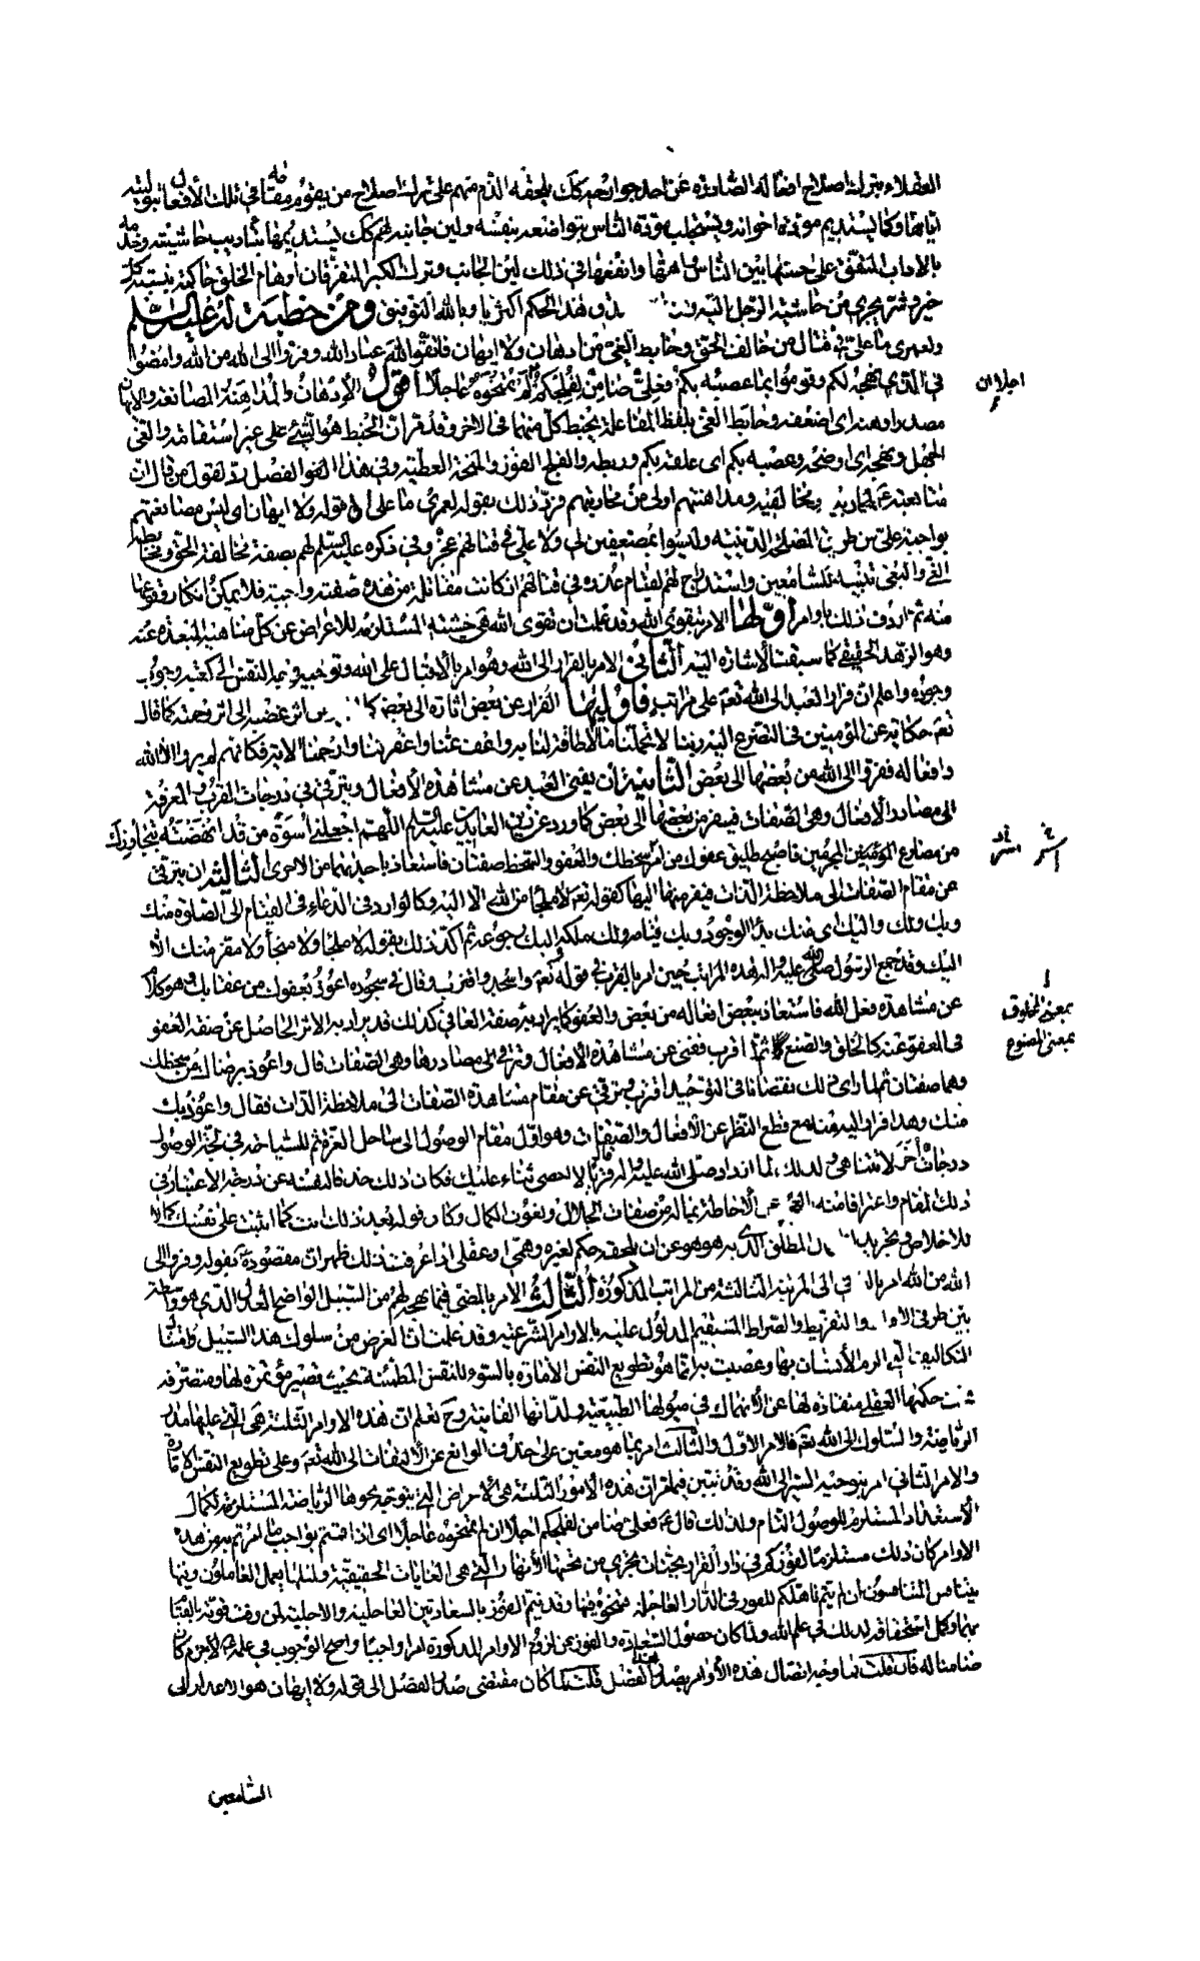 العقلاء بترك اصلاح افعاله الصادرة عن احد جوارحه كذلك يلحقه الذم منهم على ترك اصلاح من يقوم مقامه في تلك الأفعال بتوليته
اياها وكما يستديم مودة اخوانه ويستجلب مودة الناس بتواضعه بنفسه ولين جانبه لهم كذلك يستديمها بتأديب حاشيته وخدمه
بالاداب المتفق على حسنها بين الناس واهمها وانفعها في ذلك لين الجانب وترك الكبر المنفر فان اوهام الخلق حاكمة بنسبة كل
خير وشر يجرى من حاشية الرجل اليه وان هذا الحكم اكثريا وبالله التوفيق ومن خطبة له عليه السلم
ولعمرى ما علي من قتال من خالف الحق وخابط الغى من ادهان ولا ايهان فاتقوا الله عباد الله وفروا الى الله من الله وامضوا
في الذى نهجه لكم وقوموا بما عصبه بكم فعلي ضامن لفلجكم اجلا ان لم تمنحوه عاجلا اقول الإدهان والمداهنة المصانعة والايهان
مصدر اوهنه اى اضعفه وخابط الغى بلفظ المفاعلة يخبط كل منهما في الاخر وقد قرأت الخبط هو المشى على غير استقامة والغى
الجهل ونهجه اى اوضحه وعصبه بكم اى علقه بكم وربطه والفلج الفوز والمنحة العطية وفي هذا الفصل رد لقول من قال ان
متابعته لمحاربيه ومخالفيه ومداهنتهم اولى من محاربتهم فرد ذلك بقوله لعمرى ما علي الى قوله ولا ايهان اى ليس مصانعتهم
بواجبة علي من طريق المصلحة الدينية وليسوا بمضعفين لى ولا علي في قتالهم عجز وفي ذكره عليه السلم لهم بصفة مخالفة الحق ومخابطة
الغى والبغى تنبيه للسامعين واستدراج لهم لقيام عذره في قتالهم اذ كانت مقاتلة من هذه صفته واجبة فلا يمكن انكار وقوعها
منه ثم اردف ذلك باوامر اولها الامر بتقوى الله وقد علمت ان تقوى الله هي خشيته المستلزمة للاعراض عن كل مناهيه المبعدة عنه
وهو الزهد الحقيقي كما سبقت الاشارة اليه الثاني الامر بالفرار الى الله وهو امر بالاقبال على الله وتوجيه وجه النفس الى كعبة وجوب
وجوده واعلم ان فرار العبد الى الله تعالى على مراتب فاوليها الفرار عن بعض اثاره الى بعض كالفرار من اثر غضبه الى اثر رحمته كما قال
تعم حكاية عن المؤمنين في التضرع اليه ربنا لا تحملنا ما لا طاقة لنا به واعف عنا واغفر لنا وارحمنا الاية فكانهم لم يروا الا الله
وافعاله ففروا الى الله من بعضها الى بعض الثانية ان يفنى العبد عن مشاهدة الأفعال ويترقى في درجات القرب والمعرفة
الى مصادر الأفعال وهي الصفات فيفر من بعضها الى بعض كما ورد عن زين العابدين عليه السلم اللهم اجعلني اسوة من قد انهضته بتجاوزك
من مصارع المجرمين فاصبح طليق عفوك من اسر سخطك والعفو والسخط صفتان فاستعاذ باحديهما من الاخرى الثالثة ان يترقى
عن مقام الصفات الى ملاحظة الذات فيفر منها اليها كقوله تعالى لا ملجأ من الله الا اليه وكالوارد في الدعاء في القيام الى الصلوة منك
وبك ولك واليك اى منك بدأ الوجود وبك قيامه ولك ملكه واليك رجوعه ثم اكد ذلك بقوله لا ملجأ ولا منجا ولا مفر منك الا
اليك وقد جمع الرسول صلى الله عليه وآله هذه المراتب حين امر بالقرب في قوله تعالى واسجد واقترب وقال في سجوده اعوذ بعفوك من عقابك وهو كلام
عن مشاهدة فعل الله فاستعاذ ببعض افعاله من بعض والعفو كما يراد به صفة العافي كذلك قد يراد به الاثر الحاصل عن صفة العفو
في المعفو عنه كالخلق والصنع ثم لما اقرب ففنى عن مشاهدة الأفعال وترقى الى مصادرها وهي الصفات قال واعوذ برضاك من سخطك
وهما صفتان ثم لما راى ذلك نقصانا في التوحيد اقترب وترقى عن مقام مشاهدة الصفات الى ملاحظة الذات فقال واعوذ بك
منك وهذا فرار اليه منه مع قطع النظر عن الأفعال والصفات وهو اول مقام الوصول الى ساحل العزة ثم للسباحة في لجة الوصول
درجات أخر لا تتناهى ولذلك لما ازداد صلى الله عليه وآله قربا قال لا احصى ثناء عليك فكان ذلك حذفا لنفسه عن درجة الاعتبار في
ذلك المقام واعترافا منه بالعجز عن الأحاطة بماله من صفات الجلال ونعوت الكمال وكان قوله بعد ذلك انت كما اثنيت على نفسك كمالا
للاخلاص وتجريدا ان المطلق الذى به هو هو عن ان يلحقه حكم لغيره وهمى او عقلى اذا عرفت ذلك ظهر ان مقصوده بقوله وفروا الى
الله من الله امر بالترقي الى المرتبة الثالثة من المراتب المذكورة الثالث الأمر بالمضى فيما نهجه لهم من السبيل الواضح العدل الذى هو واسطة
بين طرفى الافراط والتفريط والصراط المستقيم المدلول عليه بالاوامر الشرعية وقد علمت ان الغرض من سلوك هذا السبيل وامتثال
التكاليف التى الزم الأنسان بها وعصبت به انما هو تطويع النفس الأمارة بالسوء للنفس المطمئنة بحيث تصير مؤتمرة لها ومتصرفة
تحت حكمها العقلي منقادة لها عن الأنهماك في ميولها الطبيعية ولذاتها الفانية وح تعلم ان هذه الاوامر الثلثة هي التى عليها مدار
الرياضة والسلوك الى الله تعم فالامر الاول والثالث امر بما هو معين على حذف الموانع عن الألتفات الى الله تعم وعلى تطويع النفس الأمارة
والامر الثاني امر بتوجيه السير الى الله وقد تبين فيما مر ان هذه الأمور الثلثة هي الأغراض التى يتوجه نحوها الرياضة المستلزمة لكمال
الأستعداد المستلزم للوصول التام ولذلك قال ع فعلي ضامن لفلجكم اجلا ان لم تمنحوه عاجلا اى اذا قمتم بواجب ما امرتم به من هذه
الاوامر كان ذلك مستلزما لفوزكم في دار القرار بجنات تجرى من تحتها الأنهار التى هي الغايات الحقيقية ولمثلها يعمل العاملون وفيها
يتنافس المتنافسون ان لم يتم تاهلكم للفوز في الدار العاجلة فتمنحوه فيها وقد يتم الفوز بالسعادتين العاجلية والاجلية لمن وفت قوته بالقيام
بهما وكمل استحقاقه لذلك في علم الله ولما كان حصول السعادة والفوز عن لزوم الاوامر المذكورة امرا واجبا واضح الوجوب في علمه لا جرم كان
ضامنا له فان قلت فما وجه اتصال هذه الأوامر بصدر هذا الفصل قلت لما كان مقتضى صدر الفصل الى قوله ولا ايهان هو الاعذار الى
السامعين
اجلا ان
بمعنى المخلوق
بمعنى المصنوع